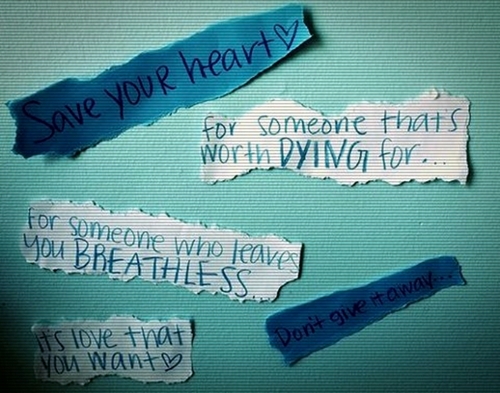 Save your heart♡
for someone that's
worth DYING for...
for someone who leaves
you BREATHLESS...
Don't give it away...
it's love that
you want♡